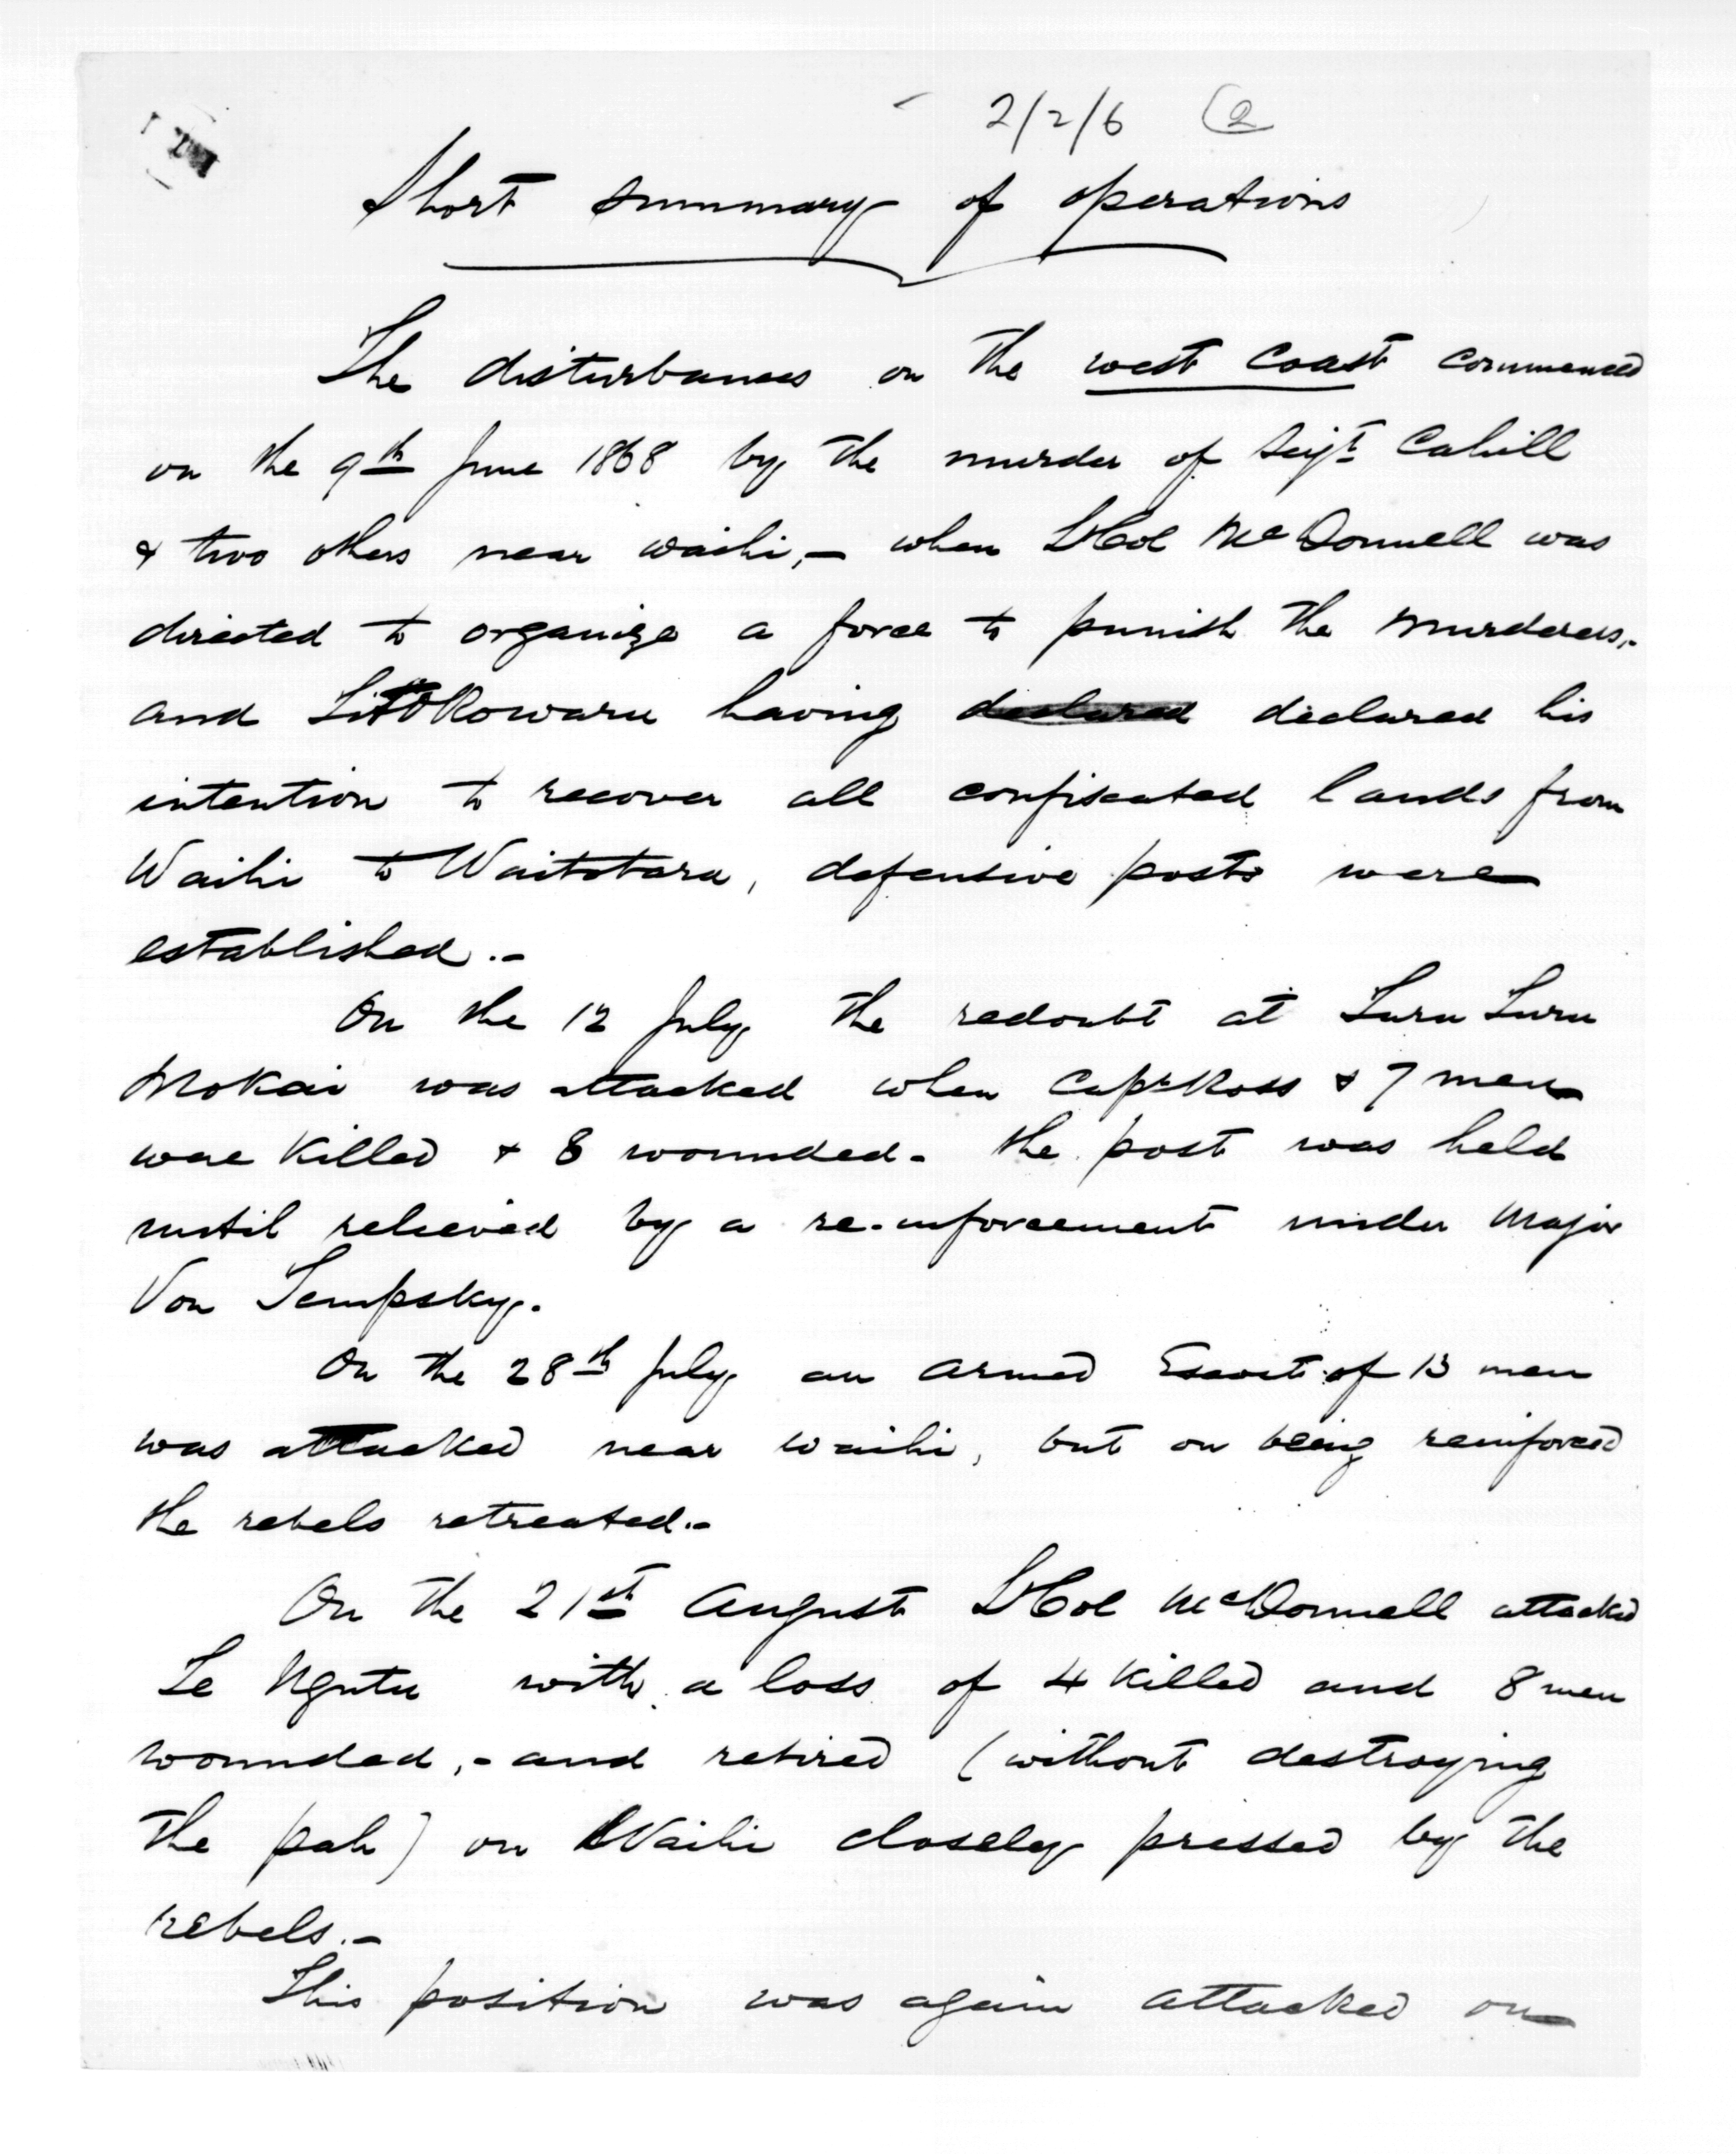 2/2/6 (2
Short summary of operations
The disturbances on the west coast commenced
on the 9th June 1868 by the murder of Sergt Cahill
& two others near waihi,- when Lt Col McDonnell was
directed to organize a force to punish the murderers,-
and Titokowaru having declared declared his
intention to recover all confiscated lands from
Waihi to Waitotara, defensive posts were
established.-
On the 12 July the redoubt at Turu Turu
Mokai was attacked when Capt Ross & 7 men
were killed & 8 wounded- the post was held
until relieved by a re-inforcement under Major
Von Tempsky.
On the 28th July an armed Escort of 13 men
was attacked near waihi, but on being reinforced
the rebels retreated.-
On the 21st August Lt Col McDonnell attacked
Te Ngutu with a loss of 4 killed and 8 men
wounded,- and retired (without destroying
the pah) on Waihi closely pressed by the
rebels.-
This position was again attacked on